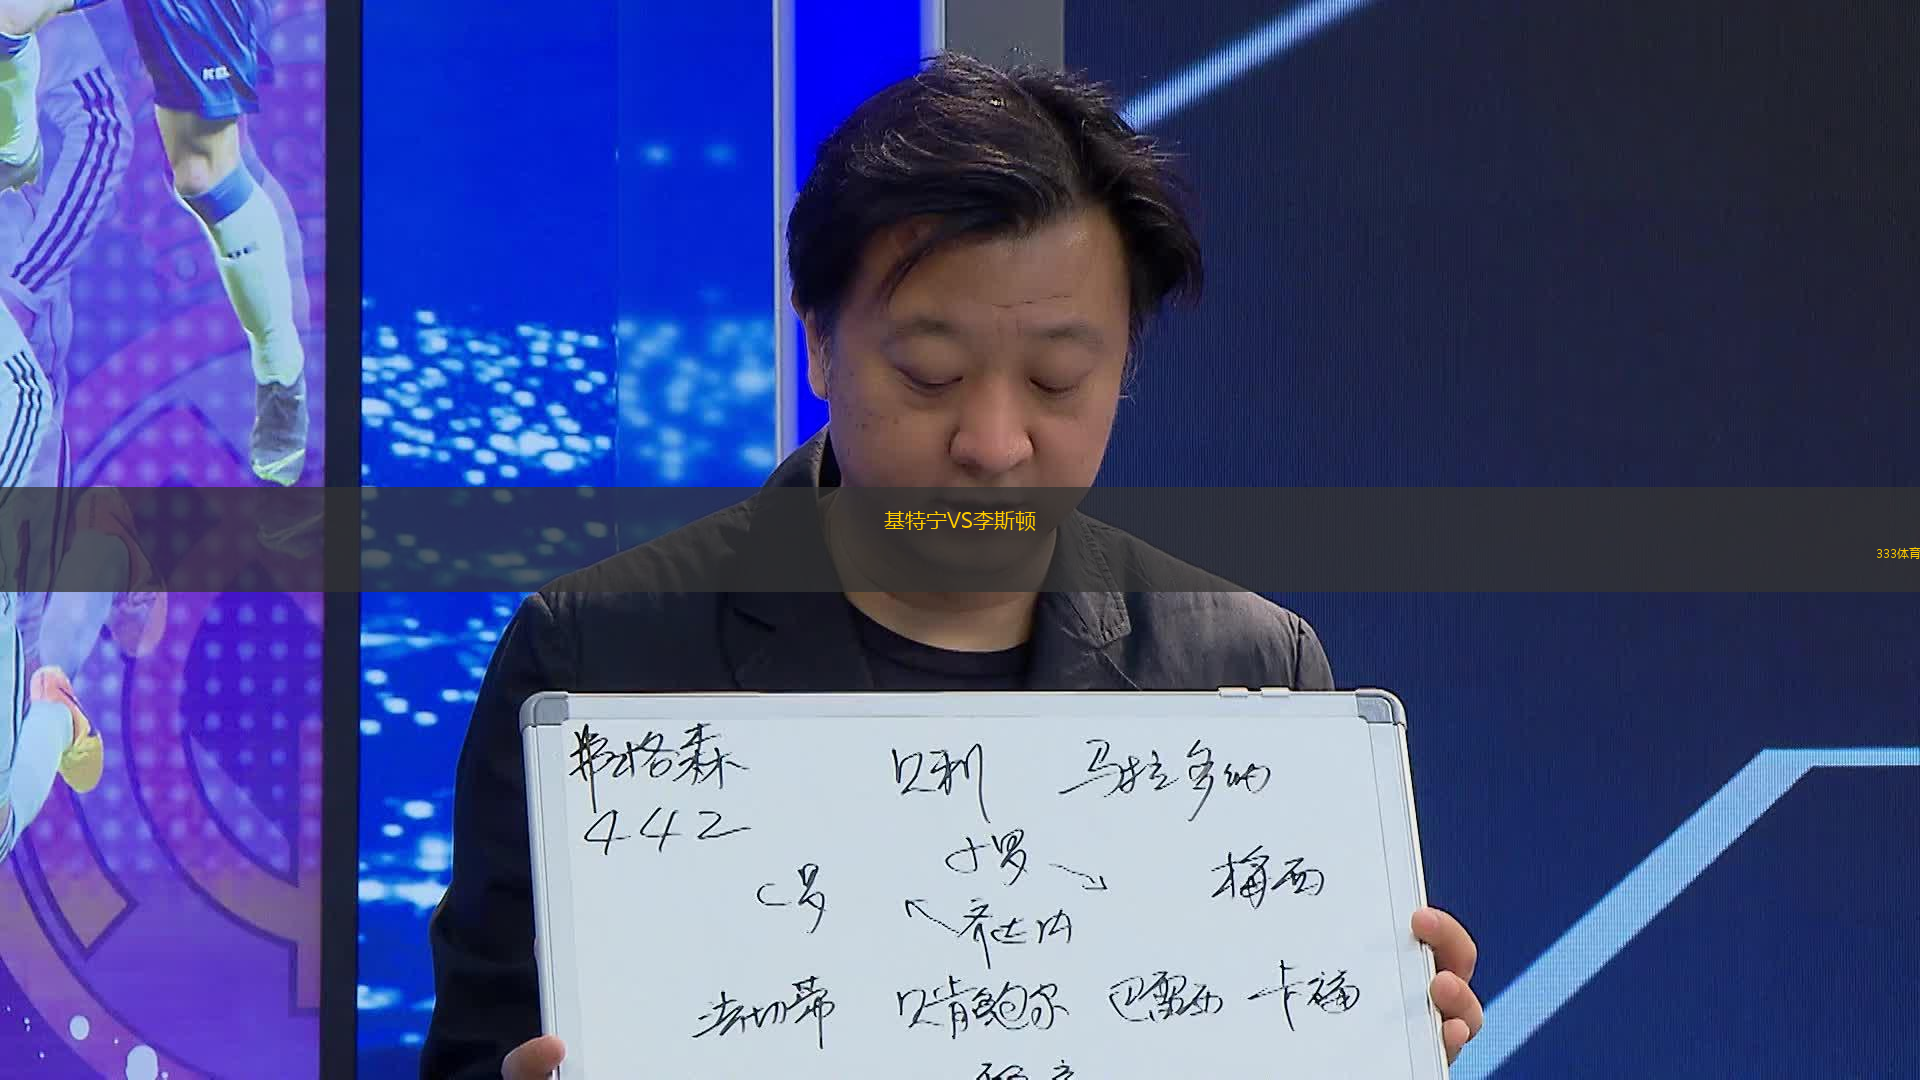 基特宁VS李斯顿
333体育
弗格森 贝利 马拉多纳
442
小罗
C罗 梅西
齐达内
法切蒂 贝肯鲍尔 巴雷西 卡福